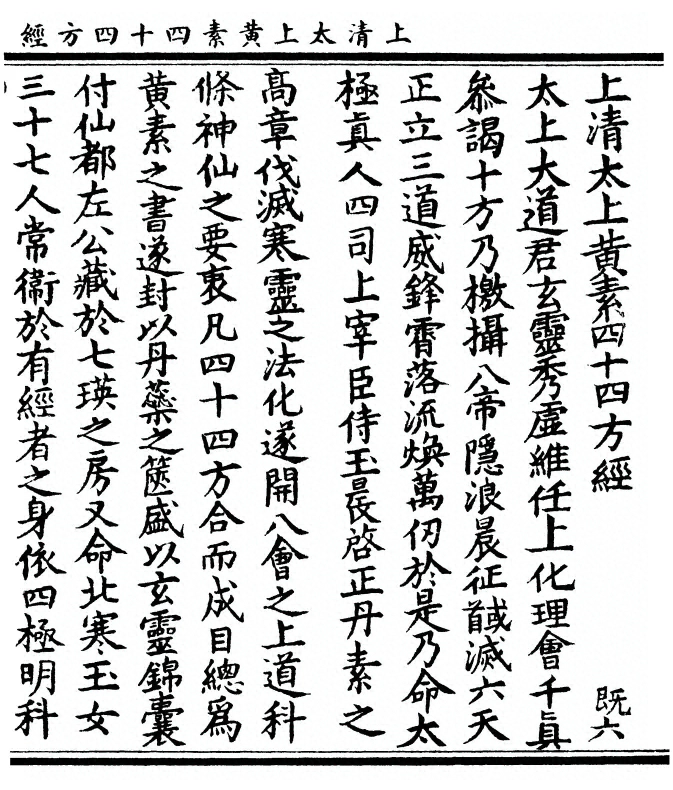 上清太上黃素四十四方經
上清太上黃素四十四方經 既六
太上大道君玄靈秀虛維任上化理會千眞
叅謁十方乃檄攝八帝隱浪晨征馘滅六天
正立三道威鋒霄落流煥萬仞於是乃命太
極眞人四司上宰臣侍玉晨啓正丹素之
高章伐滅寒靈之法化遂開八會之上道科
條神仙之要衷凡四十四方合而成目總爲
黃素之書遂封以丹蘂之篋盛以玄靈錦囊
付仙都左公藏於七瑛之房又命北寒玉女
三十七人常衞於有經者之身依四極明科